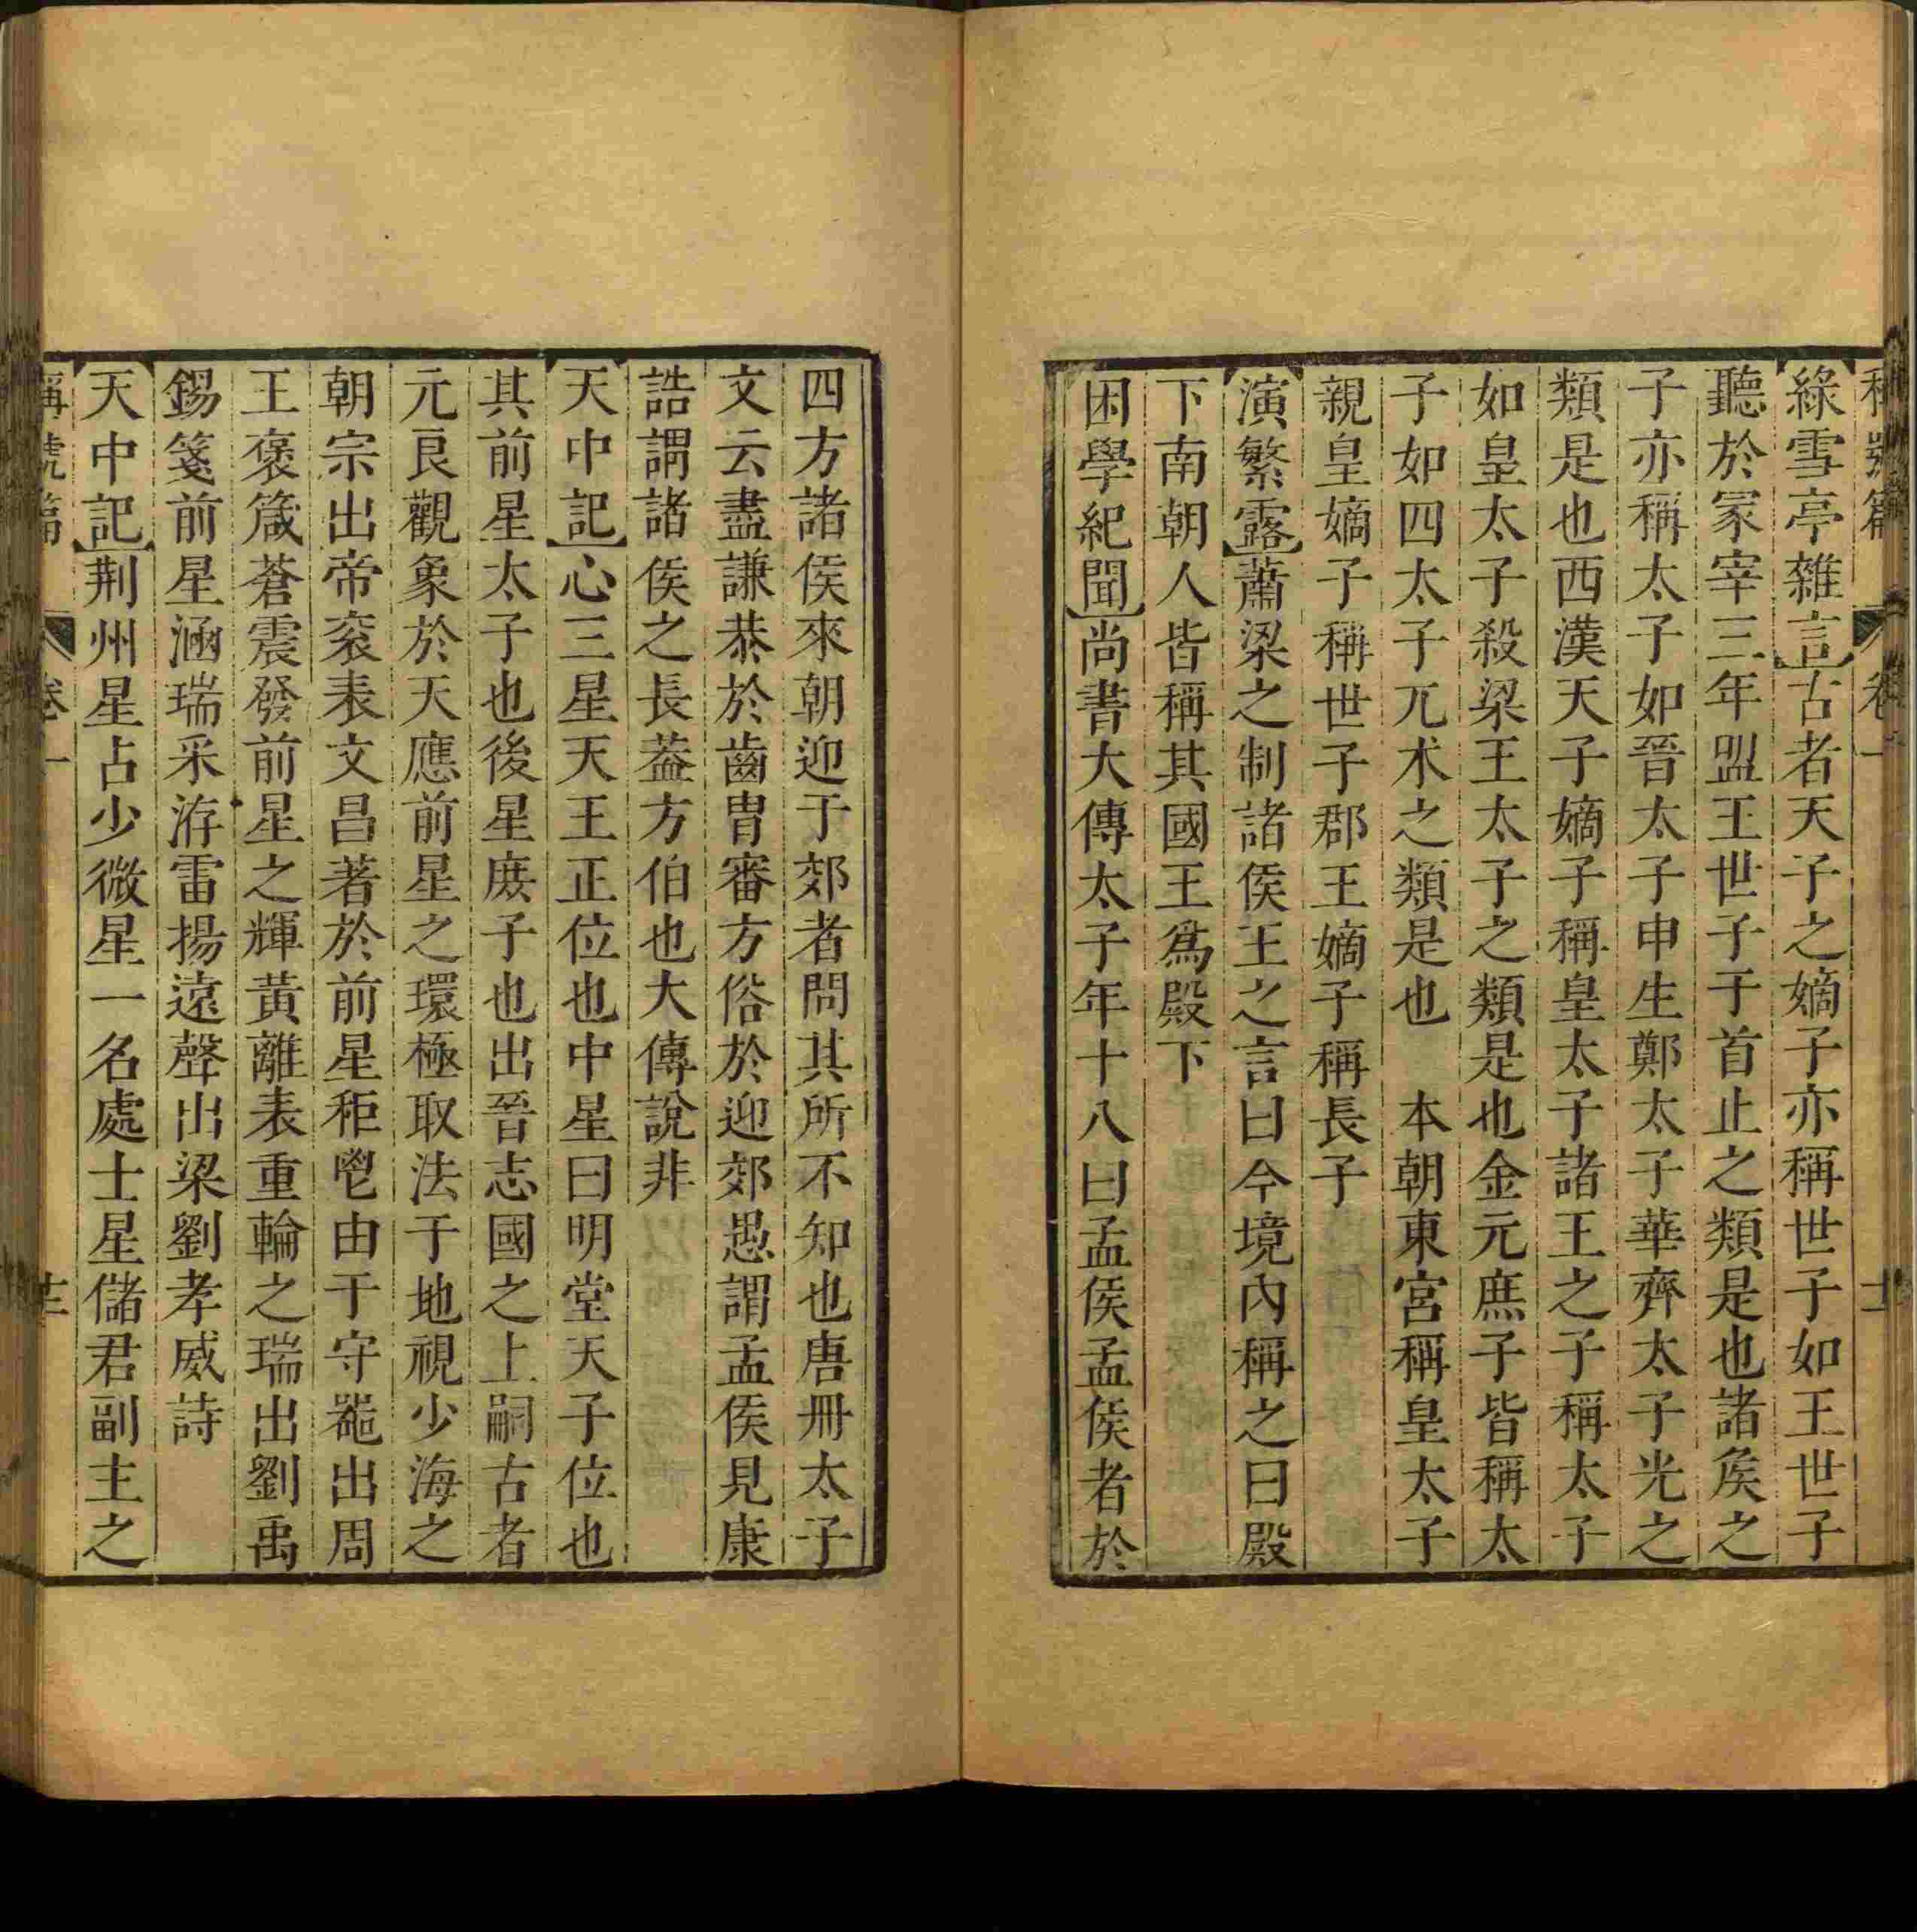 稱號篇 卷一 十二
綠雪亭雜言古者天子之嫡子亦稱世子如王世子
聽於冢宰三年盟王世子于首止之類是也諸矦之
子亦稱太子如晉太子申生鄭太子華齊太子光之
類是也西漢天子嫡子稱皇太子諸王之子稱太子
如皇太子殺梁王太子之類是也金元庶子皆稱太
子如四太子兀术之類是也 本朝東宮稱皇太子
親皇嫡子稱世子郡王嫡子稱長子
演繁露蕭梁之制諸侯王之言曰令境內稱之曰殿
下南朝人皆稱其國王爲殿下
困學紀聞尚書大傳太子年十八曰孟侯孟侯者於
四方諸侯來朝迎于郊者問其所不知也唐冊太子
文云盡謙恭於齒胄審方俗於迎郊愚謂孟侯見康
誥謂諸侯之長葢方伯也大傳說非
天中記心三星天王正位也中星曰明堂天子位也
其前星太子也後星庻子也出晉志國之上嗣古者
元良觀象於天應前星之環極取法于地視少海之
朝宗出帝衮表文昌著於前星秬鬯由于守器出周
王褒箴蒼震發前星之輝黃離表重輪之瑞出劉禹
錫箋前星涵瑞采洊雷揚遠聲出梁劉孝威詩
天中記荆州星占少微星一名處士星儲君副主之
稱號篇 卷一 十三